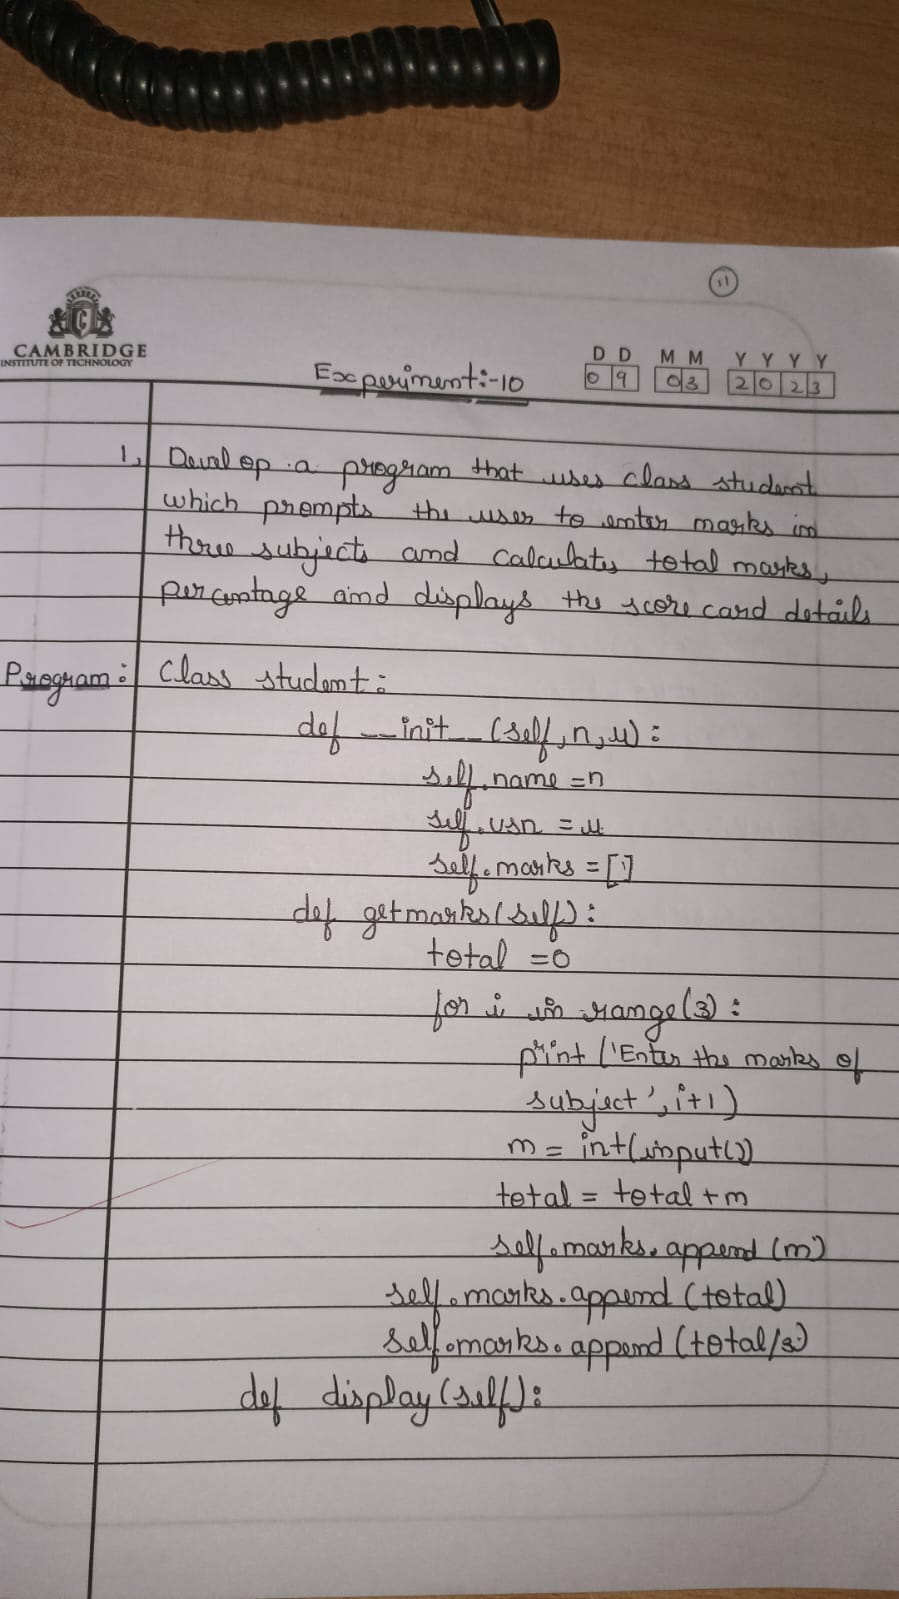 11
CAMBRIDGE
INSTITUTE OF TECHNOLOGY
D D M M Y Y Y Y
Experiment:-10 09 03 2023
1, Develop a program that uses class student
which prompts the user to enter marks in
three subjects and calculates total marks,
percentage and displays the score card details
Program: Class student:
def __init__(self,n,u):
self.name =n
self.usn =u
self.marks =[]
def getmarks(self):
total =0
for i in range(3):
print ('Enter the marks of
subject', i+1)
m = int(input())
total = total +m
self.marks.append (m)
self.marks.append (total)
self.marks.append (total/3)
def display(self):